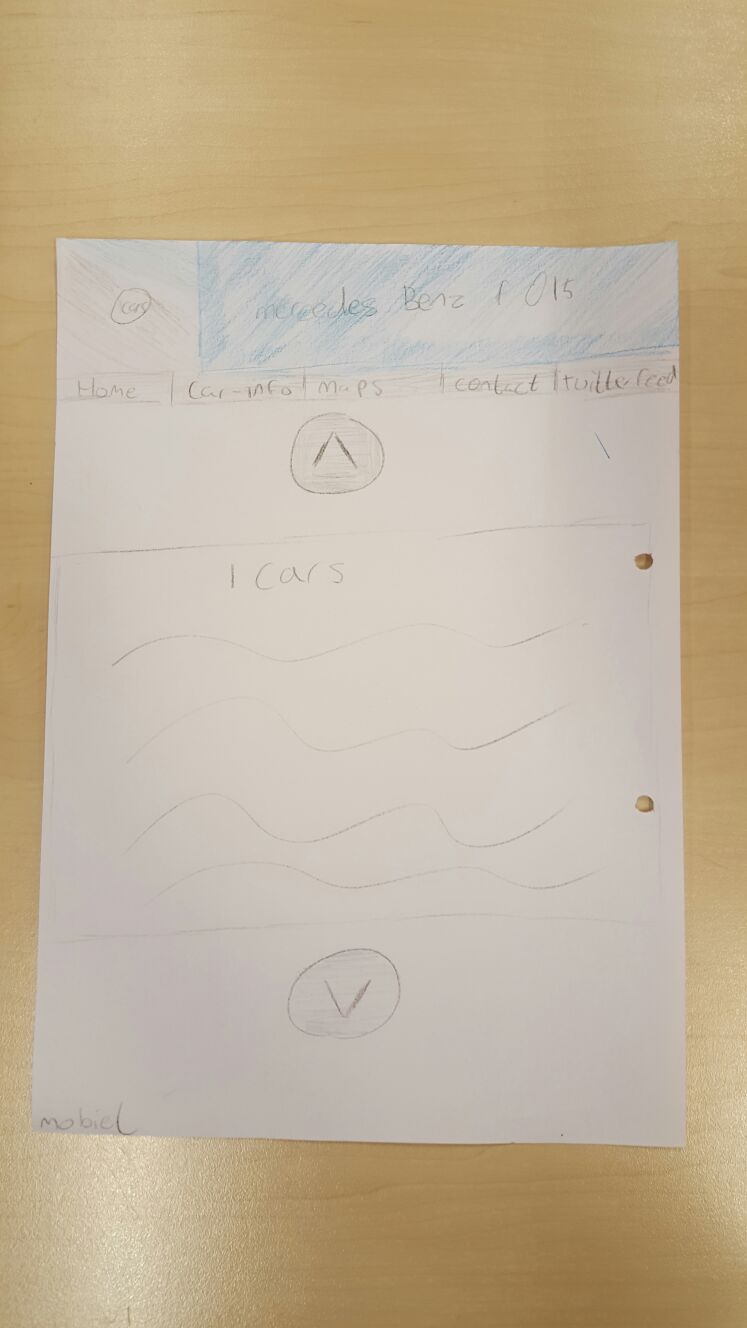 cars
mercedes Benz f 015
Home | Car-info | maps | contact | twitterfeed
1 cars
mobiel